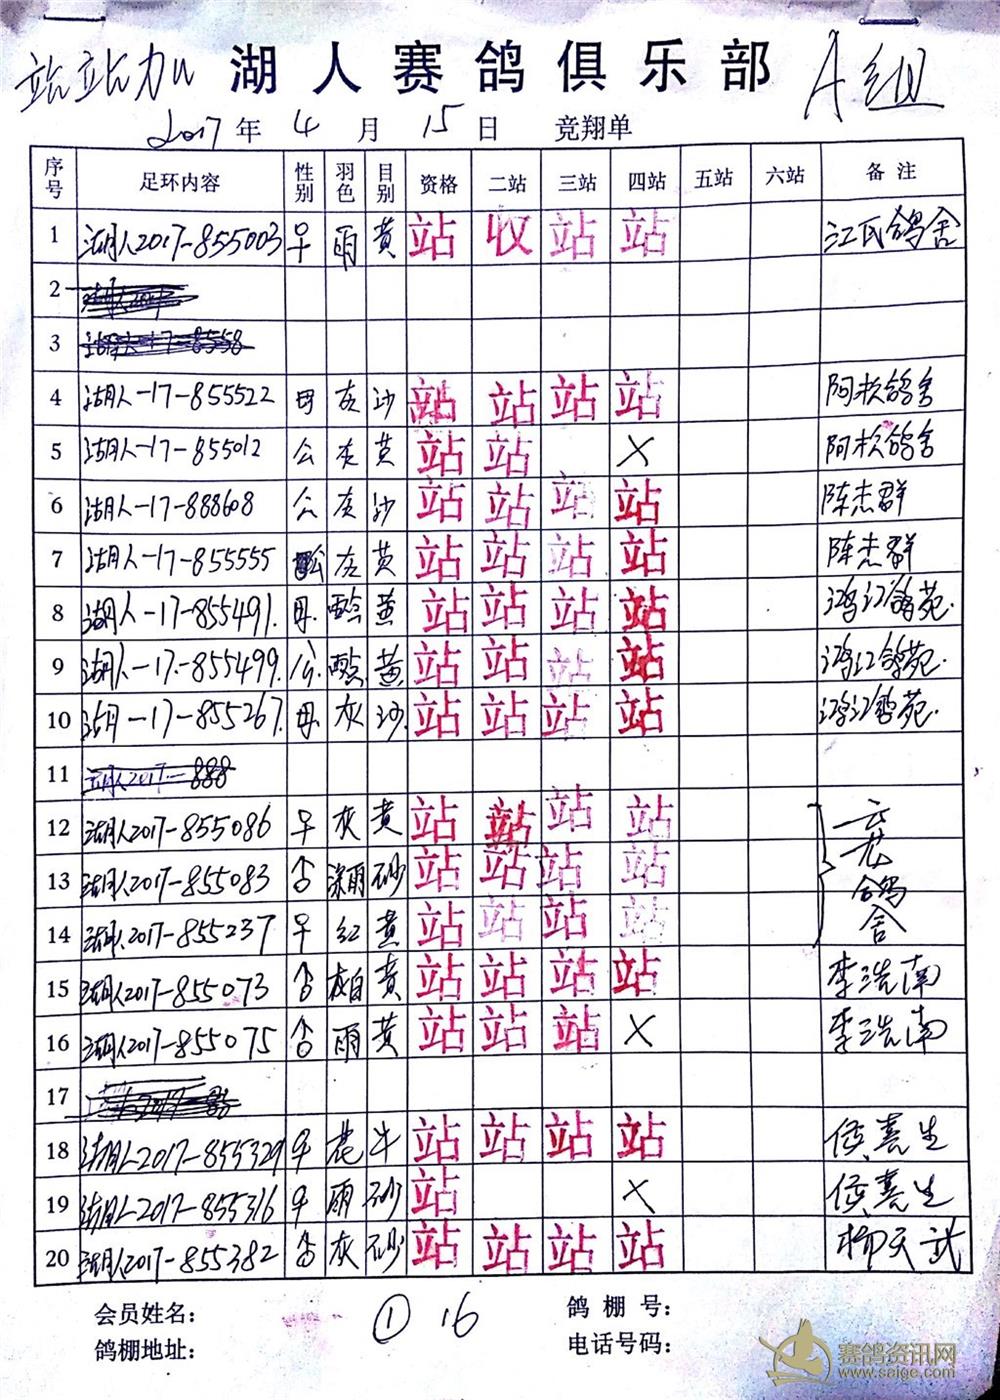 站站加 湖人赛鸽俱乐部 A组
2017 年 4 月 15 日 竞翔单
序号 足环内容 性别 羽色 目别 资格 二站 三站 四站 五站 六站 备注
1 湖人2017-855003 早 雨 黄 站 收 站 站 江氏鸽舍
2
3 湖人-17-8558
4 湖人-17-855522 母 灰 沙 站 站 站 站 阿松鸽舍
5 湖人-17-855012 公 灰 黄 站 站 × 阿松鸽舍
6 湖人-17-888608 公 灰 沙 站 站 站 站 陈志群
7 湖人-17-855555 公 灰 黄 站 站 站 站 陈志群
8 湖人-17-855491. 母. 黄 站 站 站 站 鸿江鸽苑.
9 湖人-17-855499. 公. 黄 站 站 站 站 鸿江鸽苑.
10 湖人-17-855267. 母. 灰 沙. 站 站 站 站 鸿江鸽苑.
11 湖人2017-888
12 湖人2017-855086 早 灰 黄 站 站 站 站
13 湖人2017-855083 ♂ 深雨 砂 站 站 站 站
14 湖人2017-855237 早 红 黄 站 站 站 站 鸽舍
15 湖人2017-855073 ♂ 灰白 黄 站 站 站 站 李浩南
16 湖人2017-855075 ♂ 雨 黄 站 站 站 × 李浩南
17
18 湖人2017-855329 ♀ 花 牛 站 站 站 站 侯喜生
19 湖人2017-855316 ♀ 雨 砂 站 × 侯喜生
20 湖人2017-855382 ♂ 灰 砂 站 站 站 站 柳天武
会员姓名: ① 16 鸽棚号:
鸽棚地址: 电话号码:
赛鸽资讯网
www.saige.com